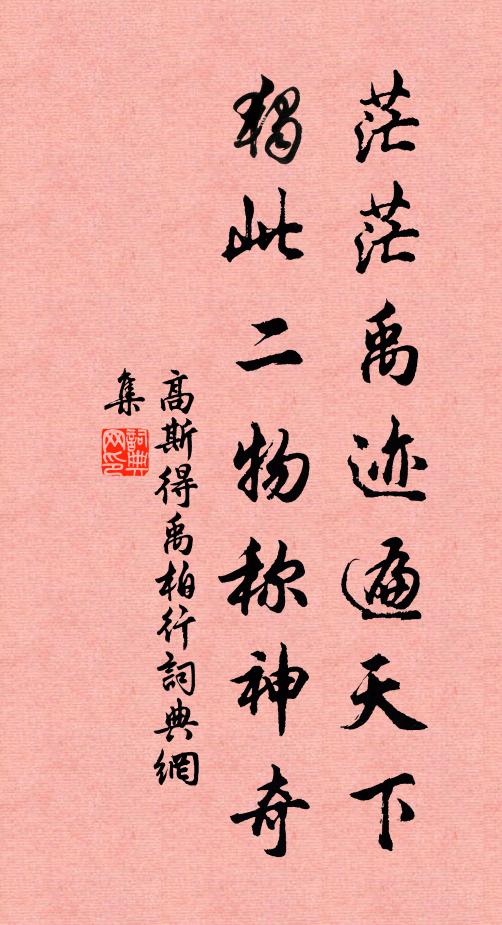 茫茫禹迹遍天下
独此二物称神奇
高斯得禹柏行詞典網
集
詞典网印